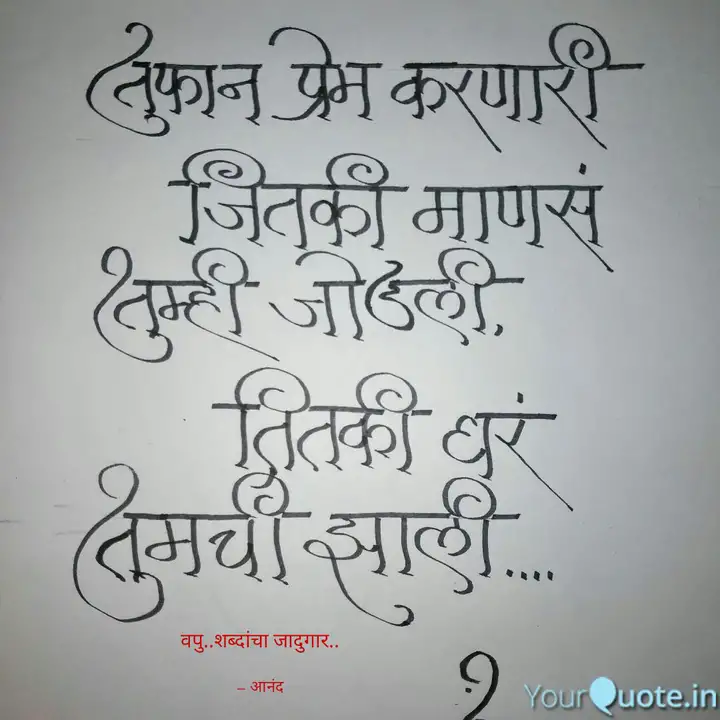 तुफान प्रेम करणारी
जितकी माणसं
तुम्ही जोडली.
तितकी घरं
तुमची झाली....
वपु..शब्दांचा जादुगार..
– आनंद
YourQuote.in